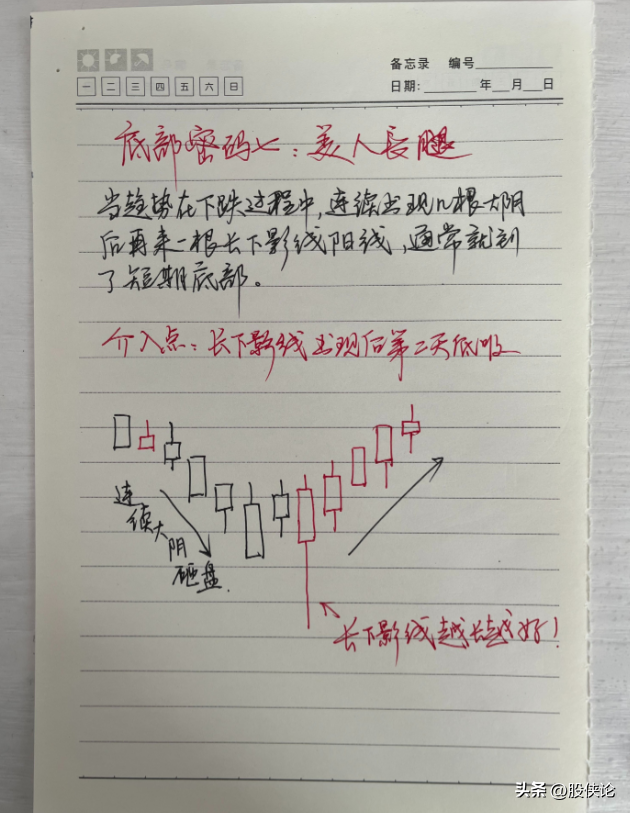 备忘录 编号
一 二 三 四 五 六 日
日期: 年 月 日
底部密码七：美人长腿
当趋势在下跌过程中，连续出现几根大阴
后再来一根长下影线阳线，通常就到
了短期底部。
介入点：长下影线出现后第二天低吸
连续大阴砸盘
长下影线越长越好！
头条 @股侠论